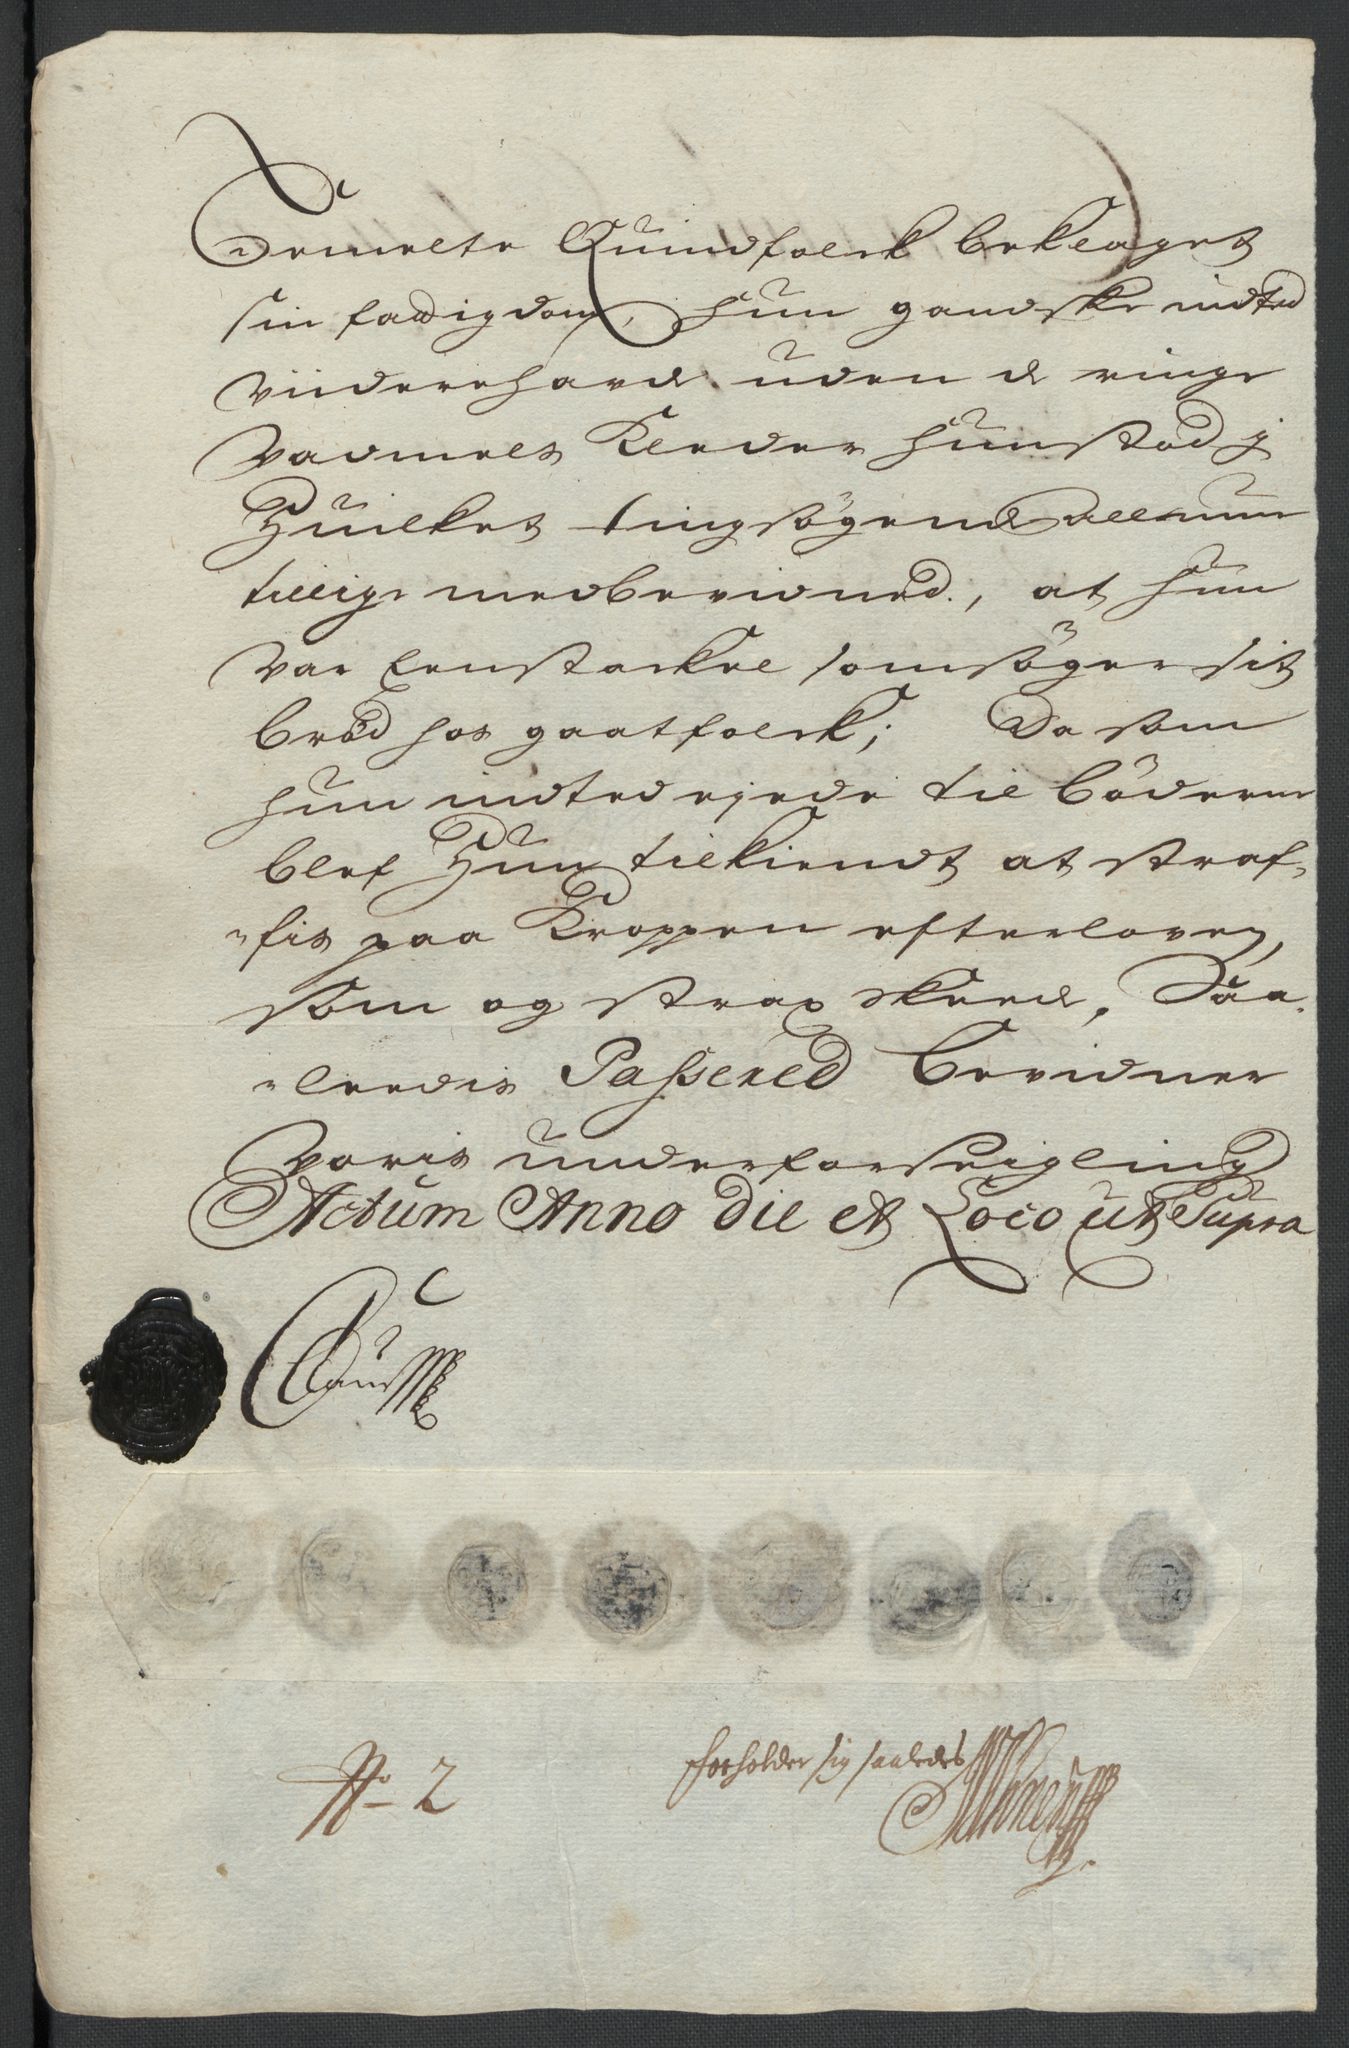 Bemelte Quindfolck beklaget
sin fattigdom, hun gandske indted
viidere hafde uden de ringe
Vadmels Kleder hun stod j
Huilket tingsøgende Allmue
tillige medbevidned, at hun
var En Stackel som søger sit
brød hos gaat folck; Da som
hun indted ejede til bøderne
blef Hun tilkiendt at straf-
-fis paa Kroppen efter loven,
som og strax skeede, Saa-
-leedis Passered bevidner
voris under forseigling
Actum Anno die et Loco ut Supra
No 2
forholder sig saaledes